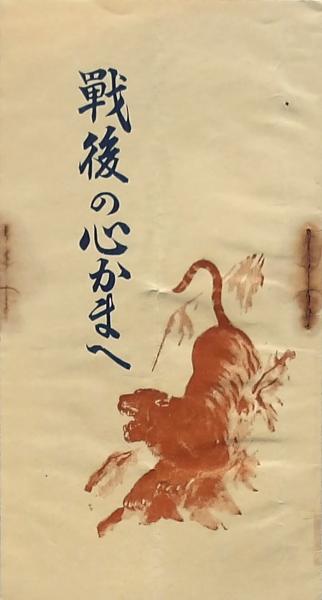 戰後の心かまへ